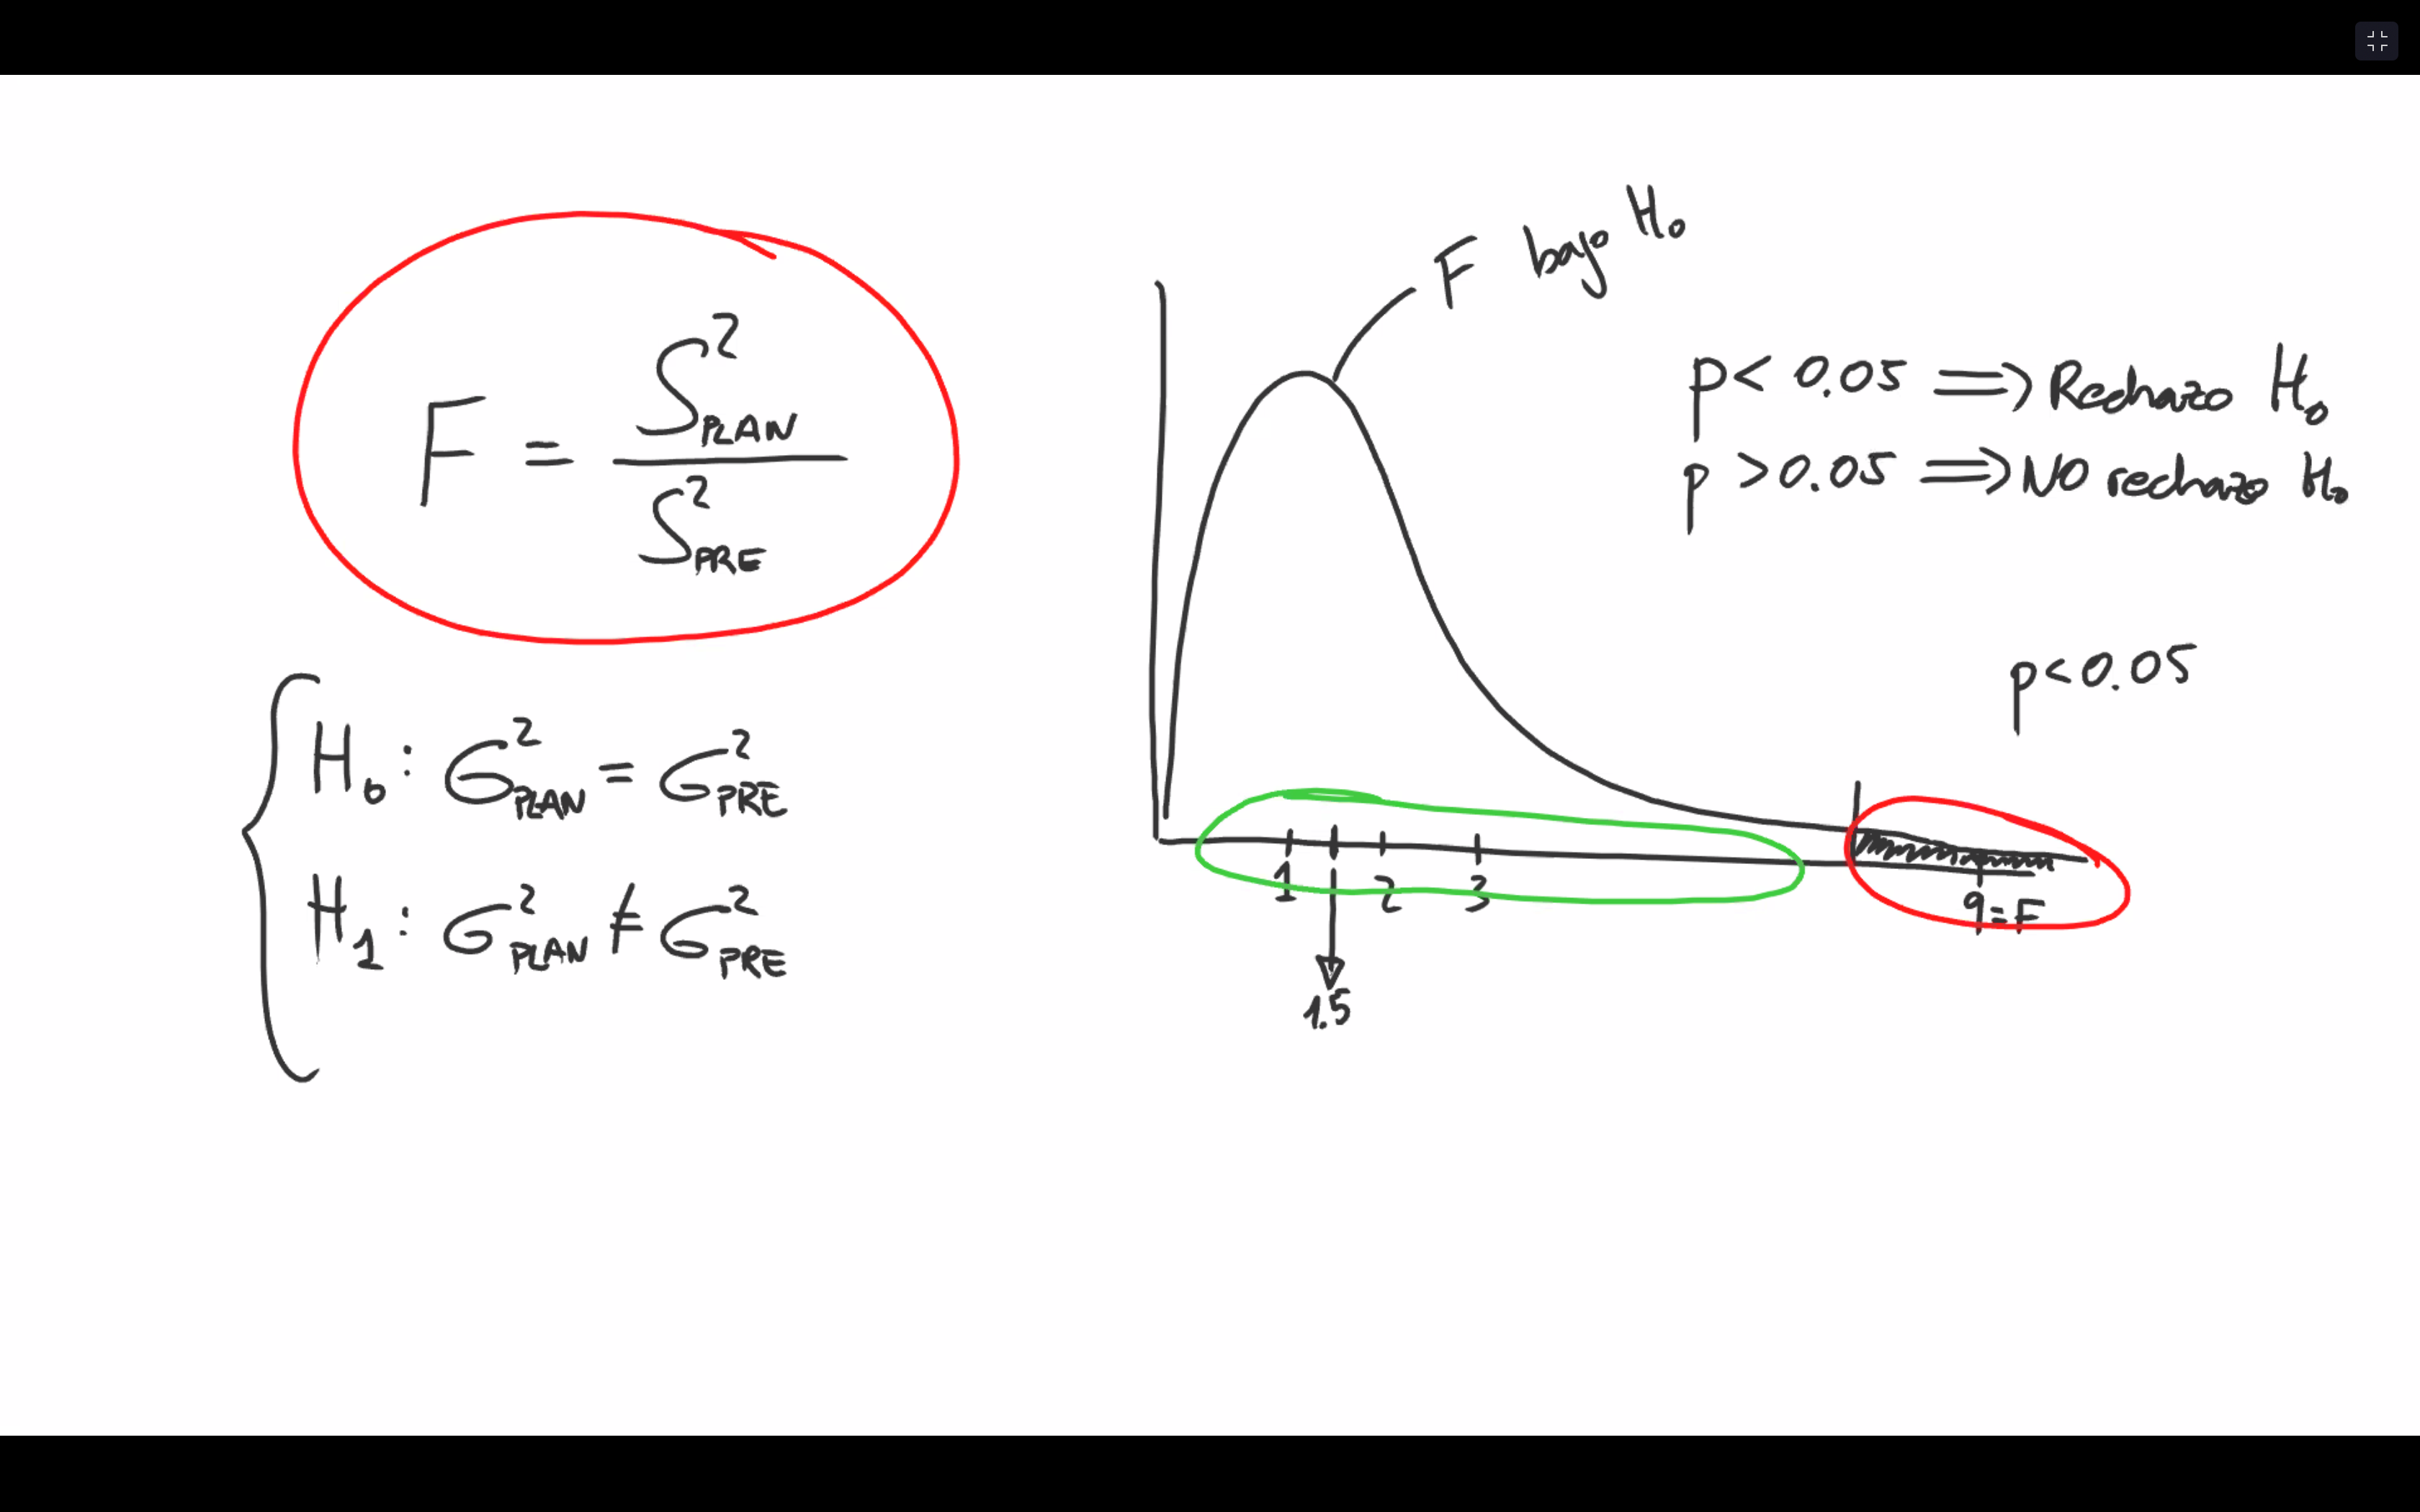 F = S²PLAN / S²PRE
H₀: σ²PLAN = σ²PRE
H₁: σ²PLAN ≠ σ²PRE
F bajo H₀
p < 0.05 ⟹ Rechazo H₀
p > 0.05 ⟹ NO rechazo H₀
p < 0.05
1 2 3
9 = F
1.5